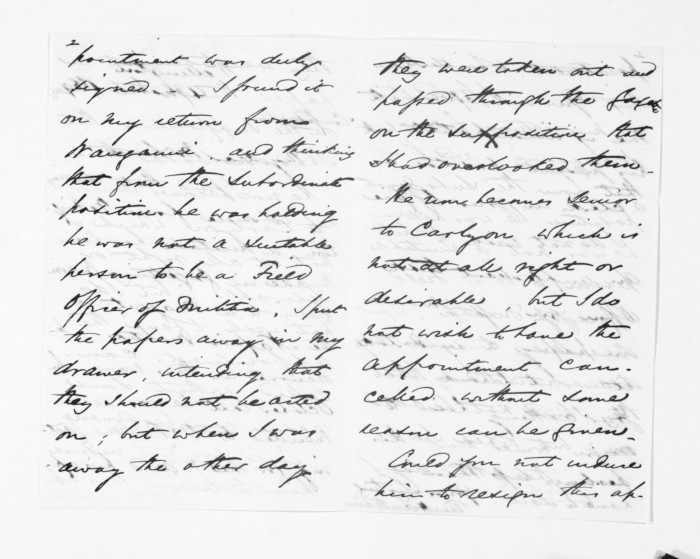 2
pointment was duly
signed. I found it
on my return from
Wanganui, and thinking
that from the subordinate
position he was holding
he was not a suitable
person to be a Field
Officer of Militia, I put
the papers away in my
drawer, intending that
they should not be acted
on; but when I was
away the other day
they were taken out and
passed through the Gazette
on the supposition that
I had overlooked them.
He now becomes senior
to Carlyon which is
not at all right or
desirable, but I do
not wish to have the
appointment can-
celled without some
reason can be given.
Could you not induce
him to resign this ap-